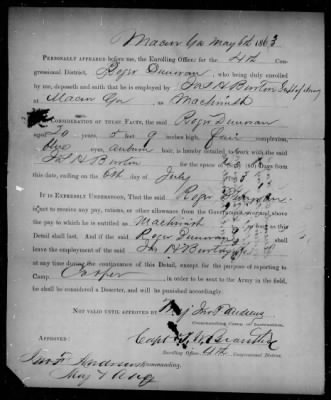 Macon Ga May 6th 1863
PERSONALLY APPEARED before me, the Enrolling Officer for the 4th Con-
gressional District, Roger Dunnan, who being duly enrolled
by me, deposeth and saith that he is employed by Jas H Burton
at Macon Ga as Machinist
IN CONSIDERATION OF THESE FACTS, the said Roger Dunnan
aged 20 years, 5 feet 9 inches high, fair complexion,
blue eyes, auburn hair, is hereby detailed to work with the said
Jas H Burton for the space of days from
this date, ending on the 6th day of July
IT IS EXPRESSLY UNDERSTOOD, That the said Roger Dunnan
is not to receive any pay, rations, or other allowance from the Government over and above
the pay to which he is entitled as Machinist while
Detail shall last. And if the said Roger Dunnan shall
leave the employment of the said Jas H Burton
at any time during the continuance of this Detail, except for the purpose of reporting to
Camp Cooper in order to be sent to the Army in the field,
he shall be considered a Deserter, and will be punished accordingly.
NOT VALID UNTIL APPROVED BY Maj Jno F Andrews
COMMANDING CAMP OF INSTRUCTION.
APPROVED: Capt
Enrolling Officer, 4th Congressional District.
Jno F Andrews Commanding.
May 7